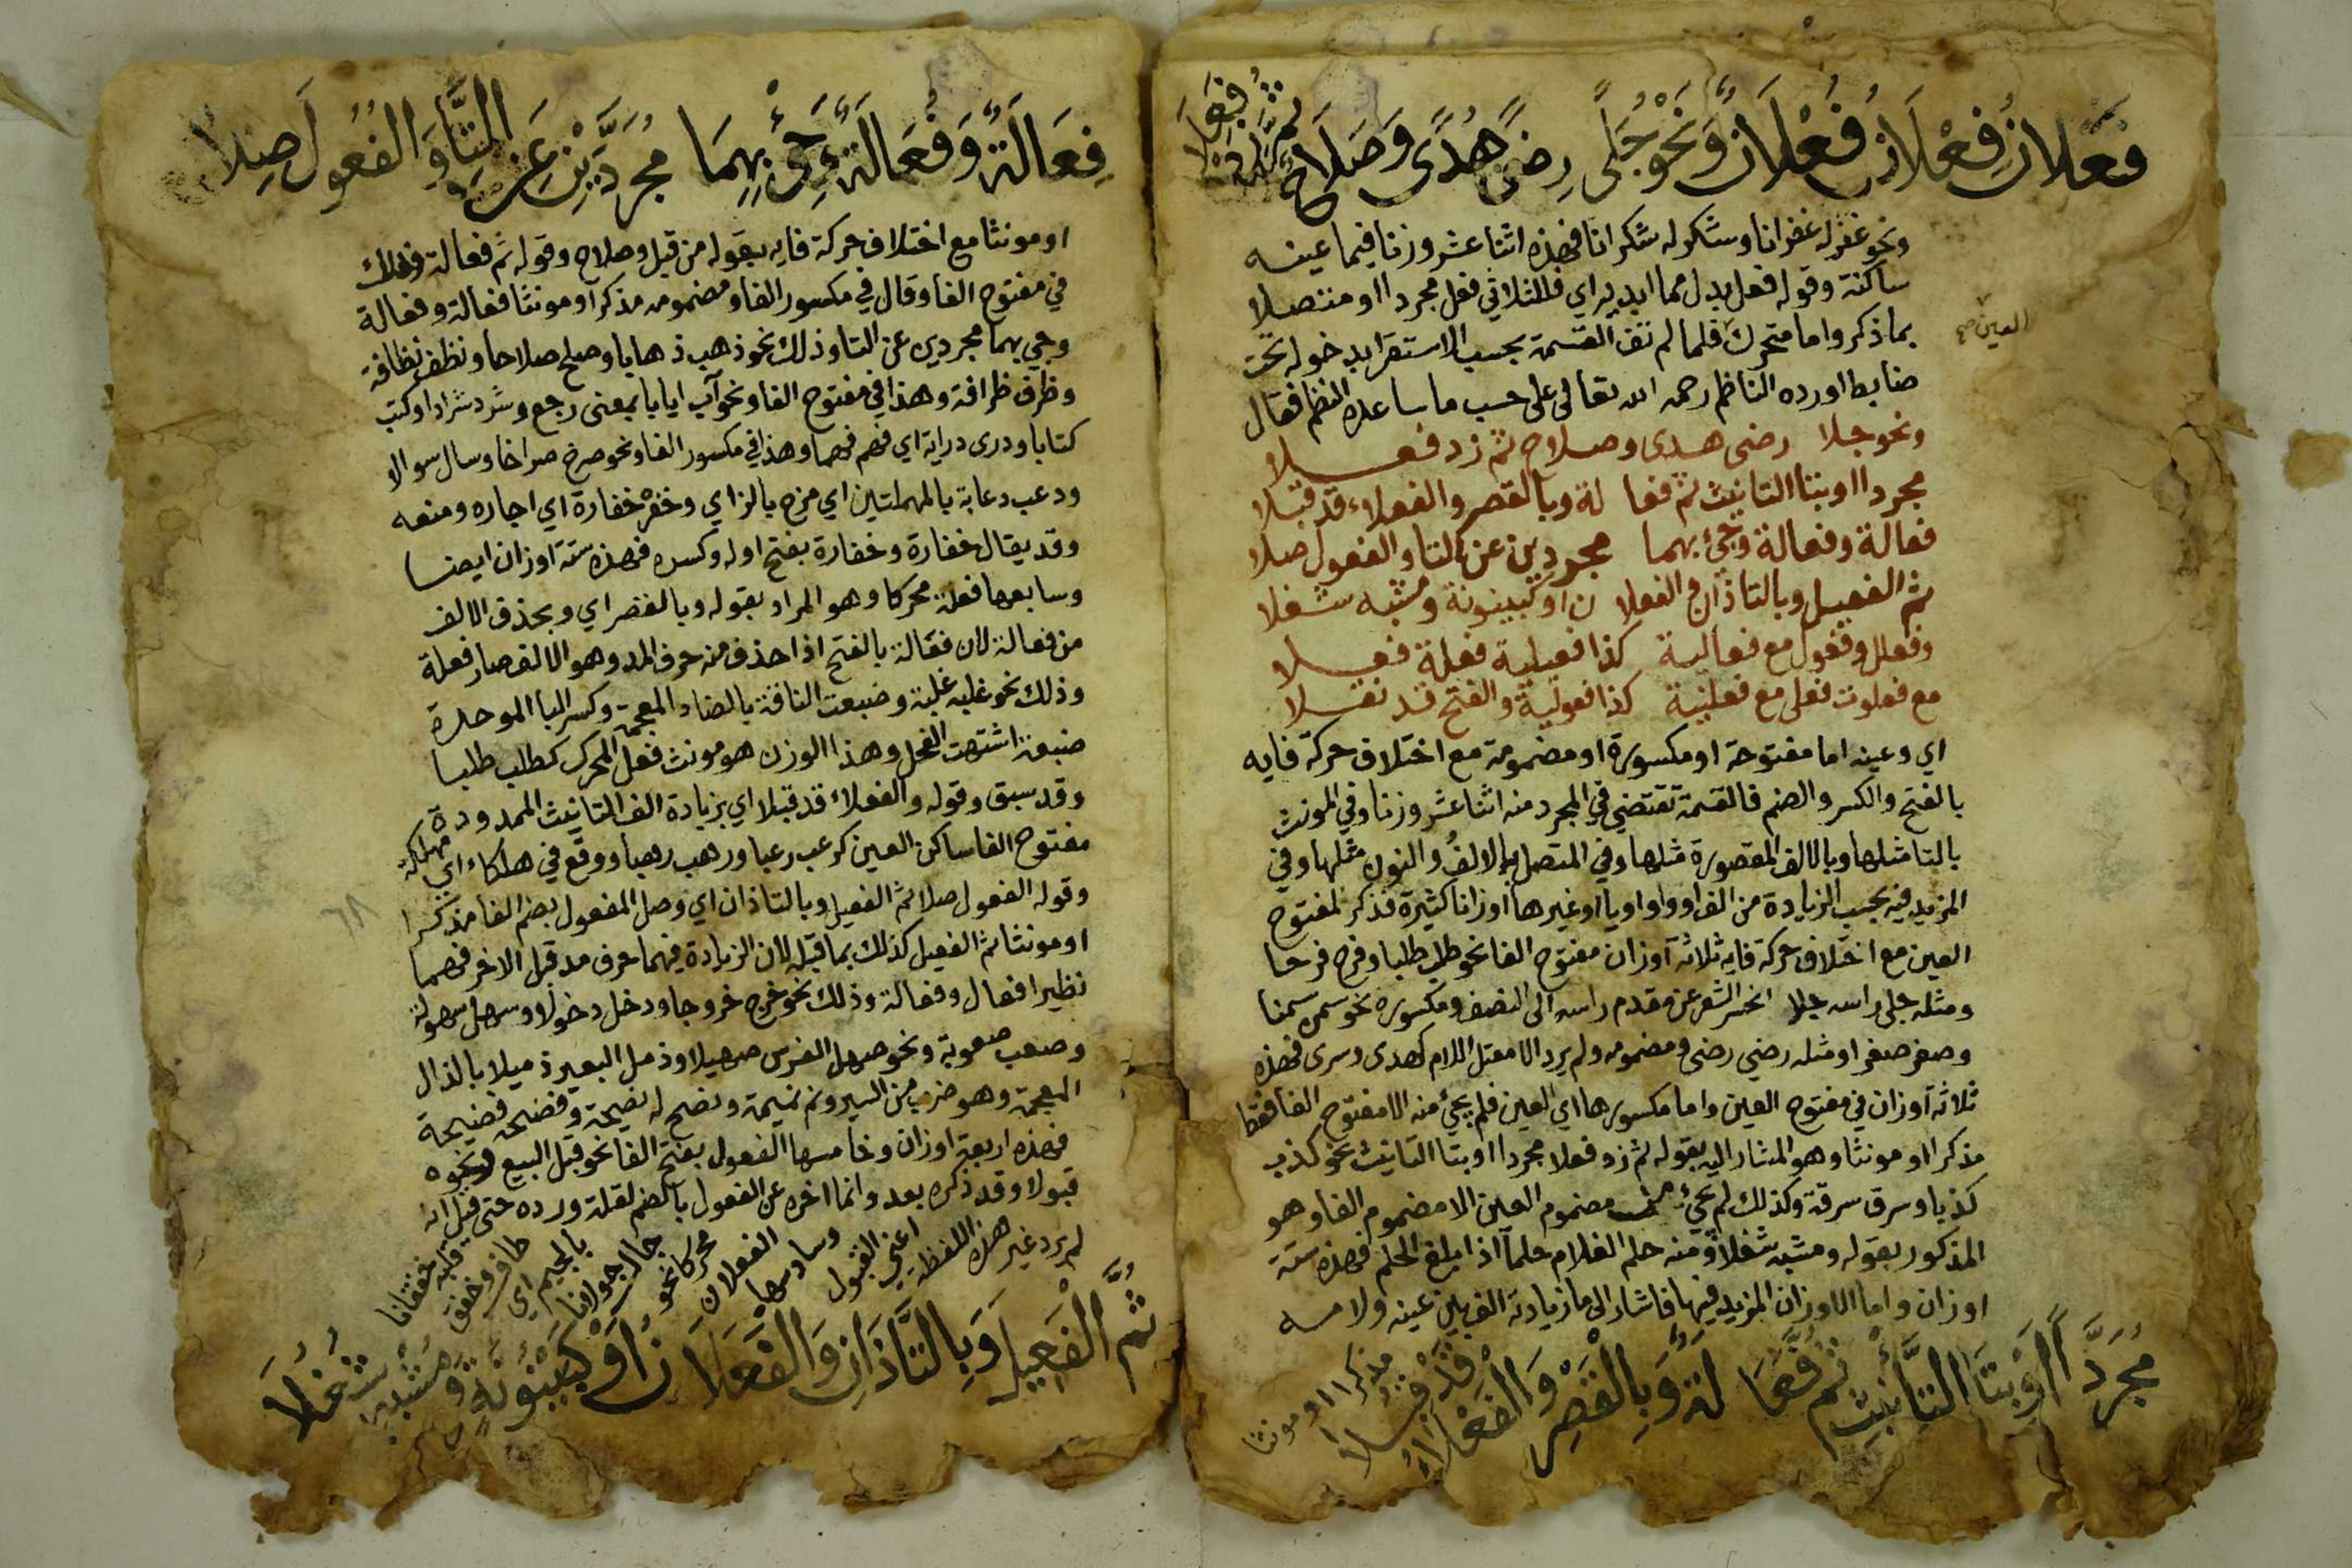 فَعْلَانُ فِعْلَانُ فُعْلَانٌ وَنَحْوُ جَلًى رِضًى هُدًى وَصَلَاحٌ ثُمَّ زِدْ فَعِلَا
ونحو غفر له غفرانا وشكر له شكرانا فهذه اثنا عشر وزنا فيما عينه
ساكنة وقوله فعل بدل مما ابدير اي فللثلاثي فعل مجردا او متصلا
بما ذكر واما متحرك العين صح فلما لم تف القسمة بحسب الاستقرا بدخوله تحت
ضابط اورده الناظم رحمه الله تعالى على حسب ما ساعده النظم فقال
ونحو جلا رضى هدى وصلاح ثم زد فعلا
مجردا او بتا التانيث ثم فعا لة وبالقصر والفعلاء قد قبلا
فعالة وفعالة وجئ بهما مجردين عن التا والفعول صلا
ثم الفعيل وبالتا ذان والفعلا ن او كبينونة ومشبه شغلا
وفعلل وفعول مع فعالية كذا فعيلية فعلة فعلا
مع فعلوت فعلى مع فعلنية كذا فعولية والفتح قد نقلا
اي وعينه اما مفتوحة او مكسورة او مضمومة مع اختلاف حركة فايه
بالفتح والكسر والضم فالقسمة تقتضي في المجرد منه اثنا عشر وزنا وفي المونث
بالتا مثلها وبالالف المقصورة مثلها وفي المتصل بالالف والنون مثلها وفي
المزيد فيه بحسب الزيادة من الف او واو او يا او غيرها اوزانا كثيرة فذكر لمفتوح
العين مع اختلاف حركة فايه ثلاثه آوزان مفتوح الفا نحو طلب طلبا وفرح فرحا
ومثله جلي راسه جلا انحسر الشعر عن مقدم راسه الى النصف ومكسوره نحو سمن سمنا
وصغر صغرا ومثله رضي رضى ومضمومه ولم يرد الا معتل اللام كهدى وسرى فهذه
ثلاثه آوزان في مفتوح العين واما مكسورها اي العين فلم يجئ منه الا مفتوح الفا فقط
مذكرا او مونثا وهو المشار اليه بقوله ثم زد فعلا مجردا او بتا التانيث نحو كذب
كذبا وسرق سرقة وكذلك لم يجئ من مضموم العين الا مضموم الفا وهو
المذكور بقوله ومشبه شغلا ومنه حلم الغلام حلما اذا بلغ الحلم فهذه ستة
اوزان واما الاوزان المزيد فيها فاشار الى ما زيادته الف بين عينه ولامه
مذكرا او مونثا
مُجَرَّدًا أَوْ بِتَا التَّأْنِيثِ ثُمَّ فَعَا لَةٌ وَبِالْقَصْرِ وَالْفَعْلَاءُ قَدْ قُبِلَا
فِعَالَةٌ وَفُعَالَةٌ وَجِئْ بِهِمَا مُجَرَّدَيْنِ عَنِ التَّا وَالْفُعُولَ صِلَا
او مونثا مع اختلاف حركة فايه بقوله من قبل وصلاح وقوله ثم فعالة وذلك
في مفتوح الفا وقال في مكسور الفا ومضمومه مذكرا ومونثا فعالة وفعالة
وجي بهما مجردين عن التا وذلك نحو ذهب ذهابا وصلح صلاحا ونظف نظافة
وظرف ظرافة وهذا في مفتوح الفا ونحو آب ايابا بمعنى رجع وشرد شرادا وكتب
كتابا ودرى دراية اي فهم فهما وهذا في مكسور الفا ونحو صرخ صراخا وسال سوالا
ودعب دعابة بالمهملتين اي مزح بالزاي وخفر خفارة اي اجاره ومنعه
وقد يقال خفارة وخفارة بفتح اوله وكسره فهذه ستة اوزان ايضا
وسابعها فعلة محركا وهو المراد بقوله وبالقصر اي وبحذف الالف
من فعالة لان فعالة بالفتح اذا حذف منه حرف المد وهو الالف صار فعلة
وذلك نحو غلبه غلبة وضبعت الناقة بالضاد المعجمة وكسر البا الموحدة
ضبعة اشتهت الفحل وهذا الوزن هو مونث فعل المحرك كطلب طلبا
وقد سبق وقوله والفعلاء قد قبلا اي بزيادة الف التانيث الممدودة
مفتوح الفا ساكن العين كرعب رعبا ورهب رهبا ووقع في هلكاء اي مهلكة
وقوله الفعول صلا ثم الفعيل وبالتا ذان اي وصل المفعول بضم الفا مذكرا
او مونثا ثم الفعيل كذلك بما قبله لان الزيادة فيهما حرف مد قبل الاخر فهما
نظيرا فعال وفعالة وذلك نحو خرج خروجا ودخل دخولا وسهل سهولة
وصعب صعوبة ونحو صهل الفرس صهيلا وذمل البعير ذميلا بالذال
المعجمة وهو ضرب من السير ونم نميمة ونصح له نصيحة وفضحه فضيحة
فهذه اربعة اوزان وخامسها الفعول بفتح الفا نحو قبل البيع ونحوه
قبولا وقد ذكره بعد وانما اخره عن الفعول بالضم لقلة وروده حتى قيل انه
لم يرد غير هذه اللفظة
اعني القبول
وسادسها
الفعلان
محركا نحو
جال جولانا
بالجيم اي
طاف وخفق
قلبه خفقانا
ثُمَّ الْفَعِيلَ وَبِالتَّا ذَانِ وَالْفَعَلَا نُ أَوْ كَبَيْنُونَةٍ وَمُشْبِهٍ شُغُلَا
٦٨